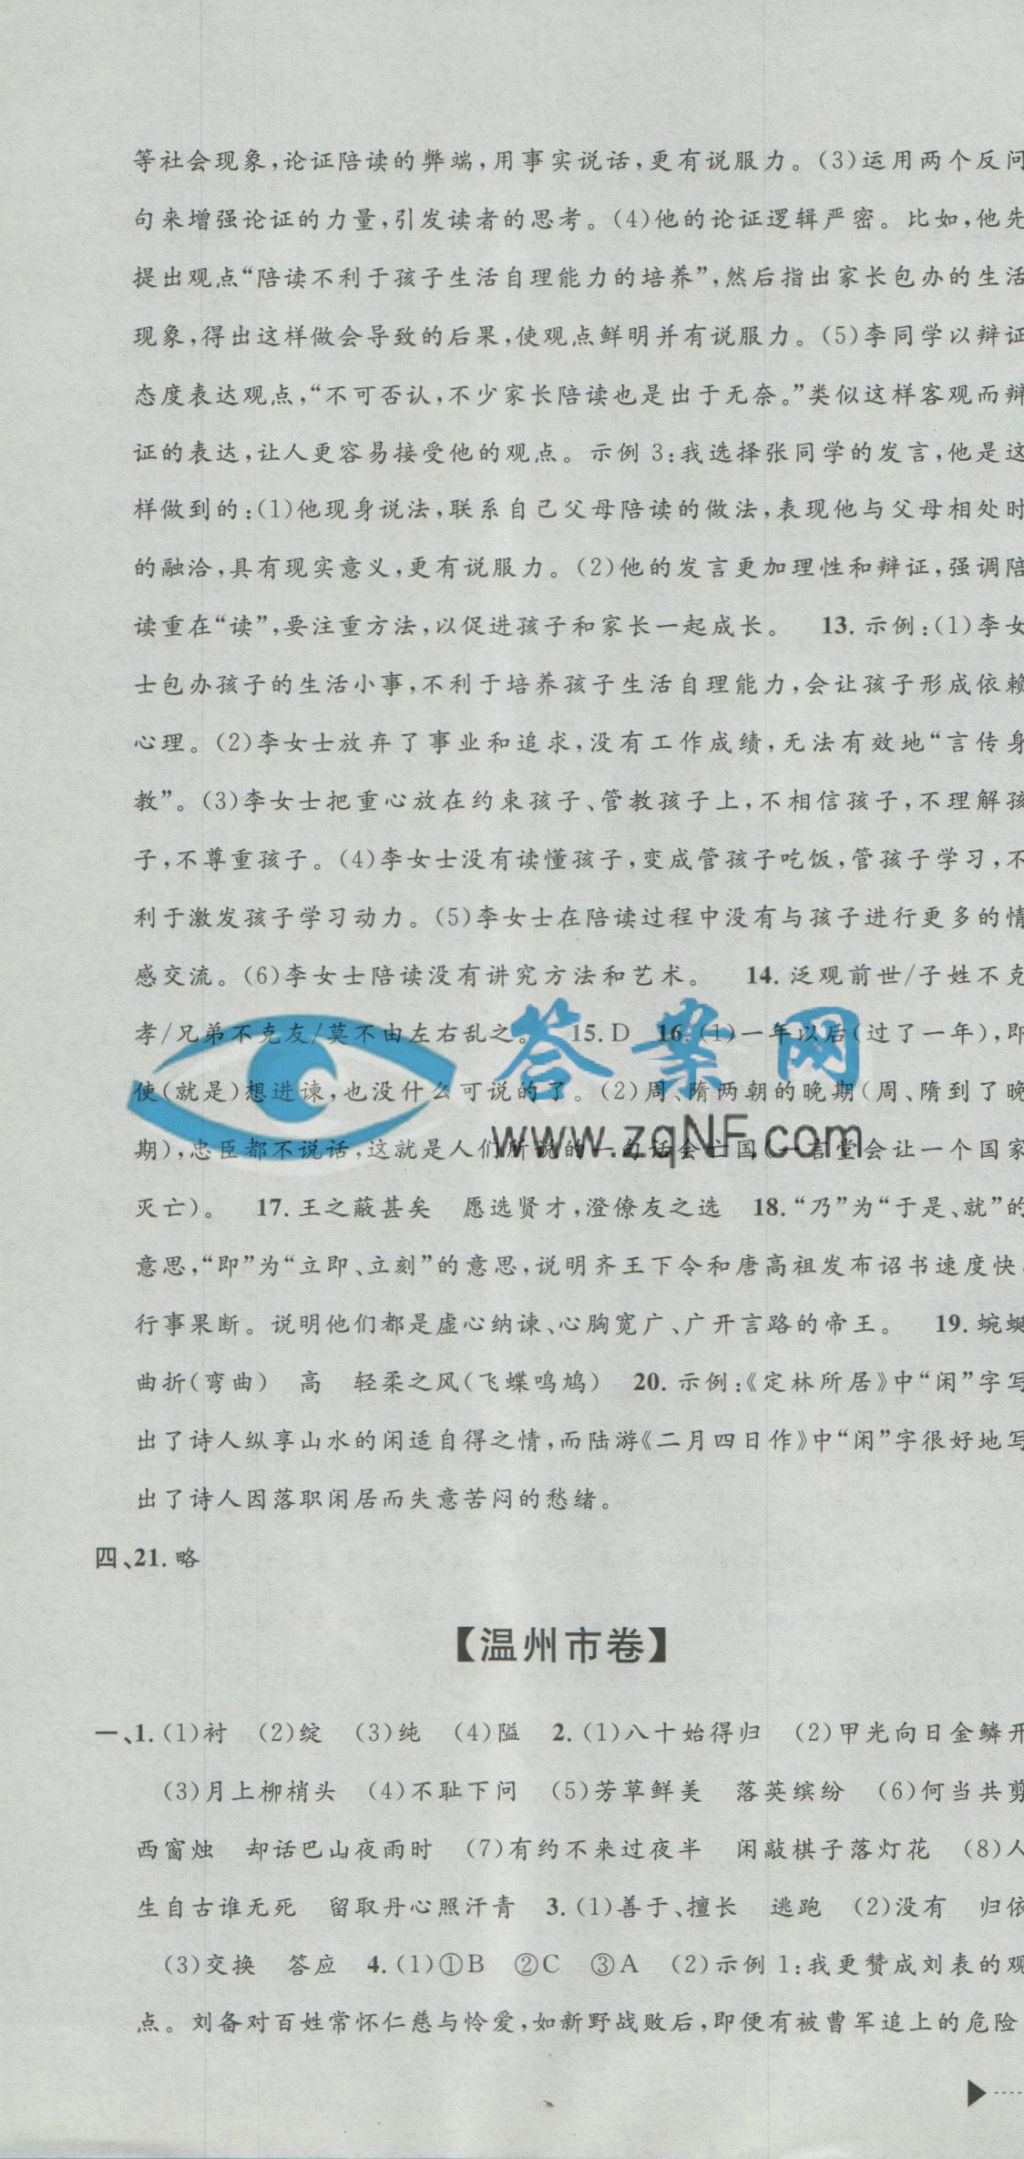 等社会现象,论证陪读的弊端,用事实说话,更有说服力。(3)运用两个反问
句来增强论证的力量,引发读者的思考。(4)他的论证逻辑严密。比如,他先
提出观点“陪读不利于孩子生活自理能力的培养”,然后指出家长包办的生活
现象,得出这样做会导致的后果,使观点鲜明并有说服力。(5)李同学以辩证
态度表达观点,“不可否认,不少家长陪读也是出于无奈。”类似这样客观而辩
证的表达,让人更容易接受他的观点。示例 3:我选择张同学的发言,他是这
样做到的:(1)他现身说法,联系自己父母陪读的做法,表现他与父母相处时
的融洽,具有现实意义,更有说服力。(2)他的发言更加理性和辩证,强调陪
读重在“读”,要注重方法,以促进孩子和家长一起成长。 13. 示例:(1)李女
士包办孩子的生活小事,不利于培养孩子生活自理能力,会让孩子形成依赖
心理。(2)李女士放弃了事业和追求,没有工作成绩,无法有效地“言传身
教”。(3)李女士把重心放在约束孩子、管教孩子上,不相信孩子,不理解孩
子,不尊重孩子。(4)李女士没有读懂孩子,变成管孩子吃饭,管孩子学习,不
利于激发孩子学习动力。(5)李女士在陪读过程中没有与孩子进行更多的情
感交流。(6)李女士陪读没有讲究方法和艺术。 14. 泛观前世/子姓不克
孝/兄弟不克友/莫不由左右乱之。 15. D 16. (1)一年以后(过了一年),即
使(就是)想进谏,也没什么可说的了。(2)周、隋两朝的晚期(周、隋到了晚
期),忠臣都不说话,这就是人们所说的一句话会亡国(一言堂会让一个国家
灭亡)。 17. 王之蔽甚矣 愿选贤才,澄僚友之选 18. “乃”为“于是、就”的
意思,“即”为“立即、立刻”的意思,说明齐王下令和唐高祖发布诏书速度快,
行事果断。说明他们都是虚心纳谏、心胸宽广、广开言路的帝王。 19. 蜿蜒
曲折(弯曲) 高 轻柔之风(飞蝶鸣鸠) 20. 示例:《定林所居》中“闲”字写
出了诗人纵享山水的闲适自得之情,而陆游《二月四日作》中“闲”字很好地写
出了诗人因落职闲居而失意苦闷的愁绪。
四、21. 略
答案网
www.zqNF.com
【温州市卷】
一、1. (1)衬 (2)绽 (3)纯 (4)隘 2. (1)八十始得归 (2)甲光向日金鳞开
(3)月上柳梢头 (4)不耻下问 (5)芳草鲜美 落英缤纷 (6)何当共剪
西窗烛 却话巴山夜雨时 (7)有约不来过夜半 闲敲棋子落灯花 (8)人
生自古谁无死 留取丹心照汗青 3. (1)善于、擅长 逃跑 (2)没有 归依
(3)交换 答应 4. (1)①B ②C ③A (2)示例 1:我更赞成刘表的观
点。刘备对百姓常怀仁慈与怜爱,如新野战败后,即便有被曹军追上的危险